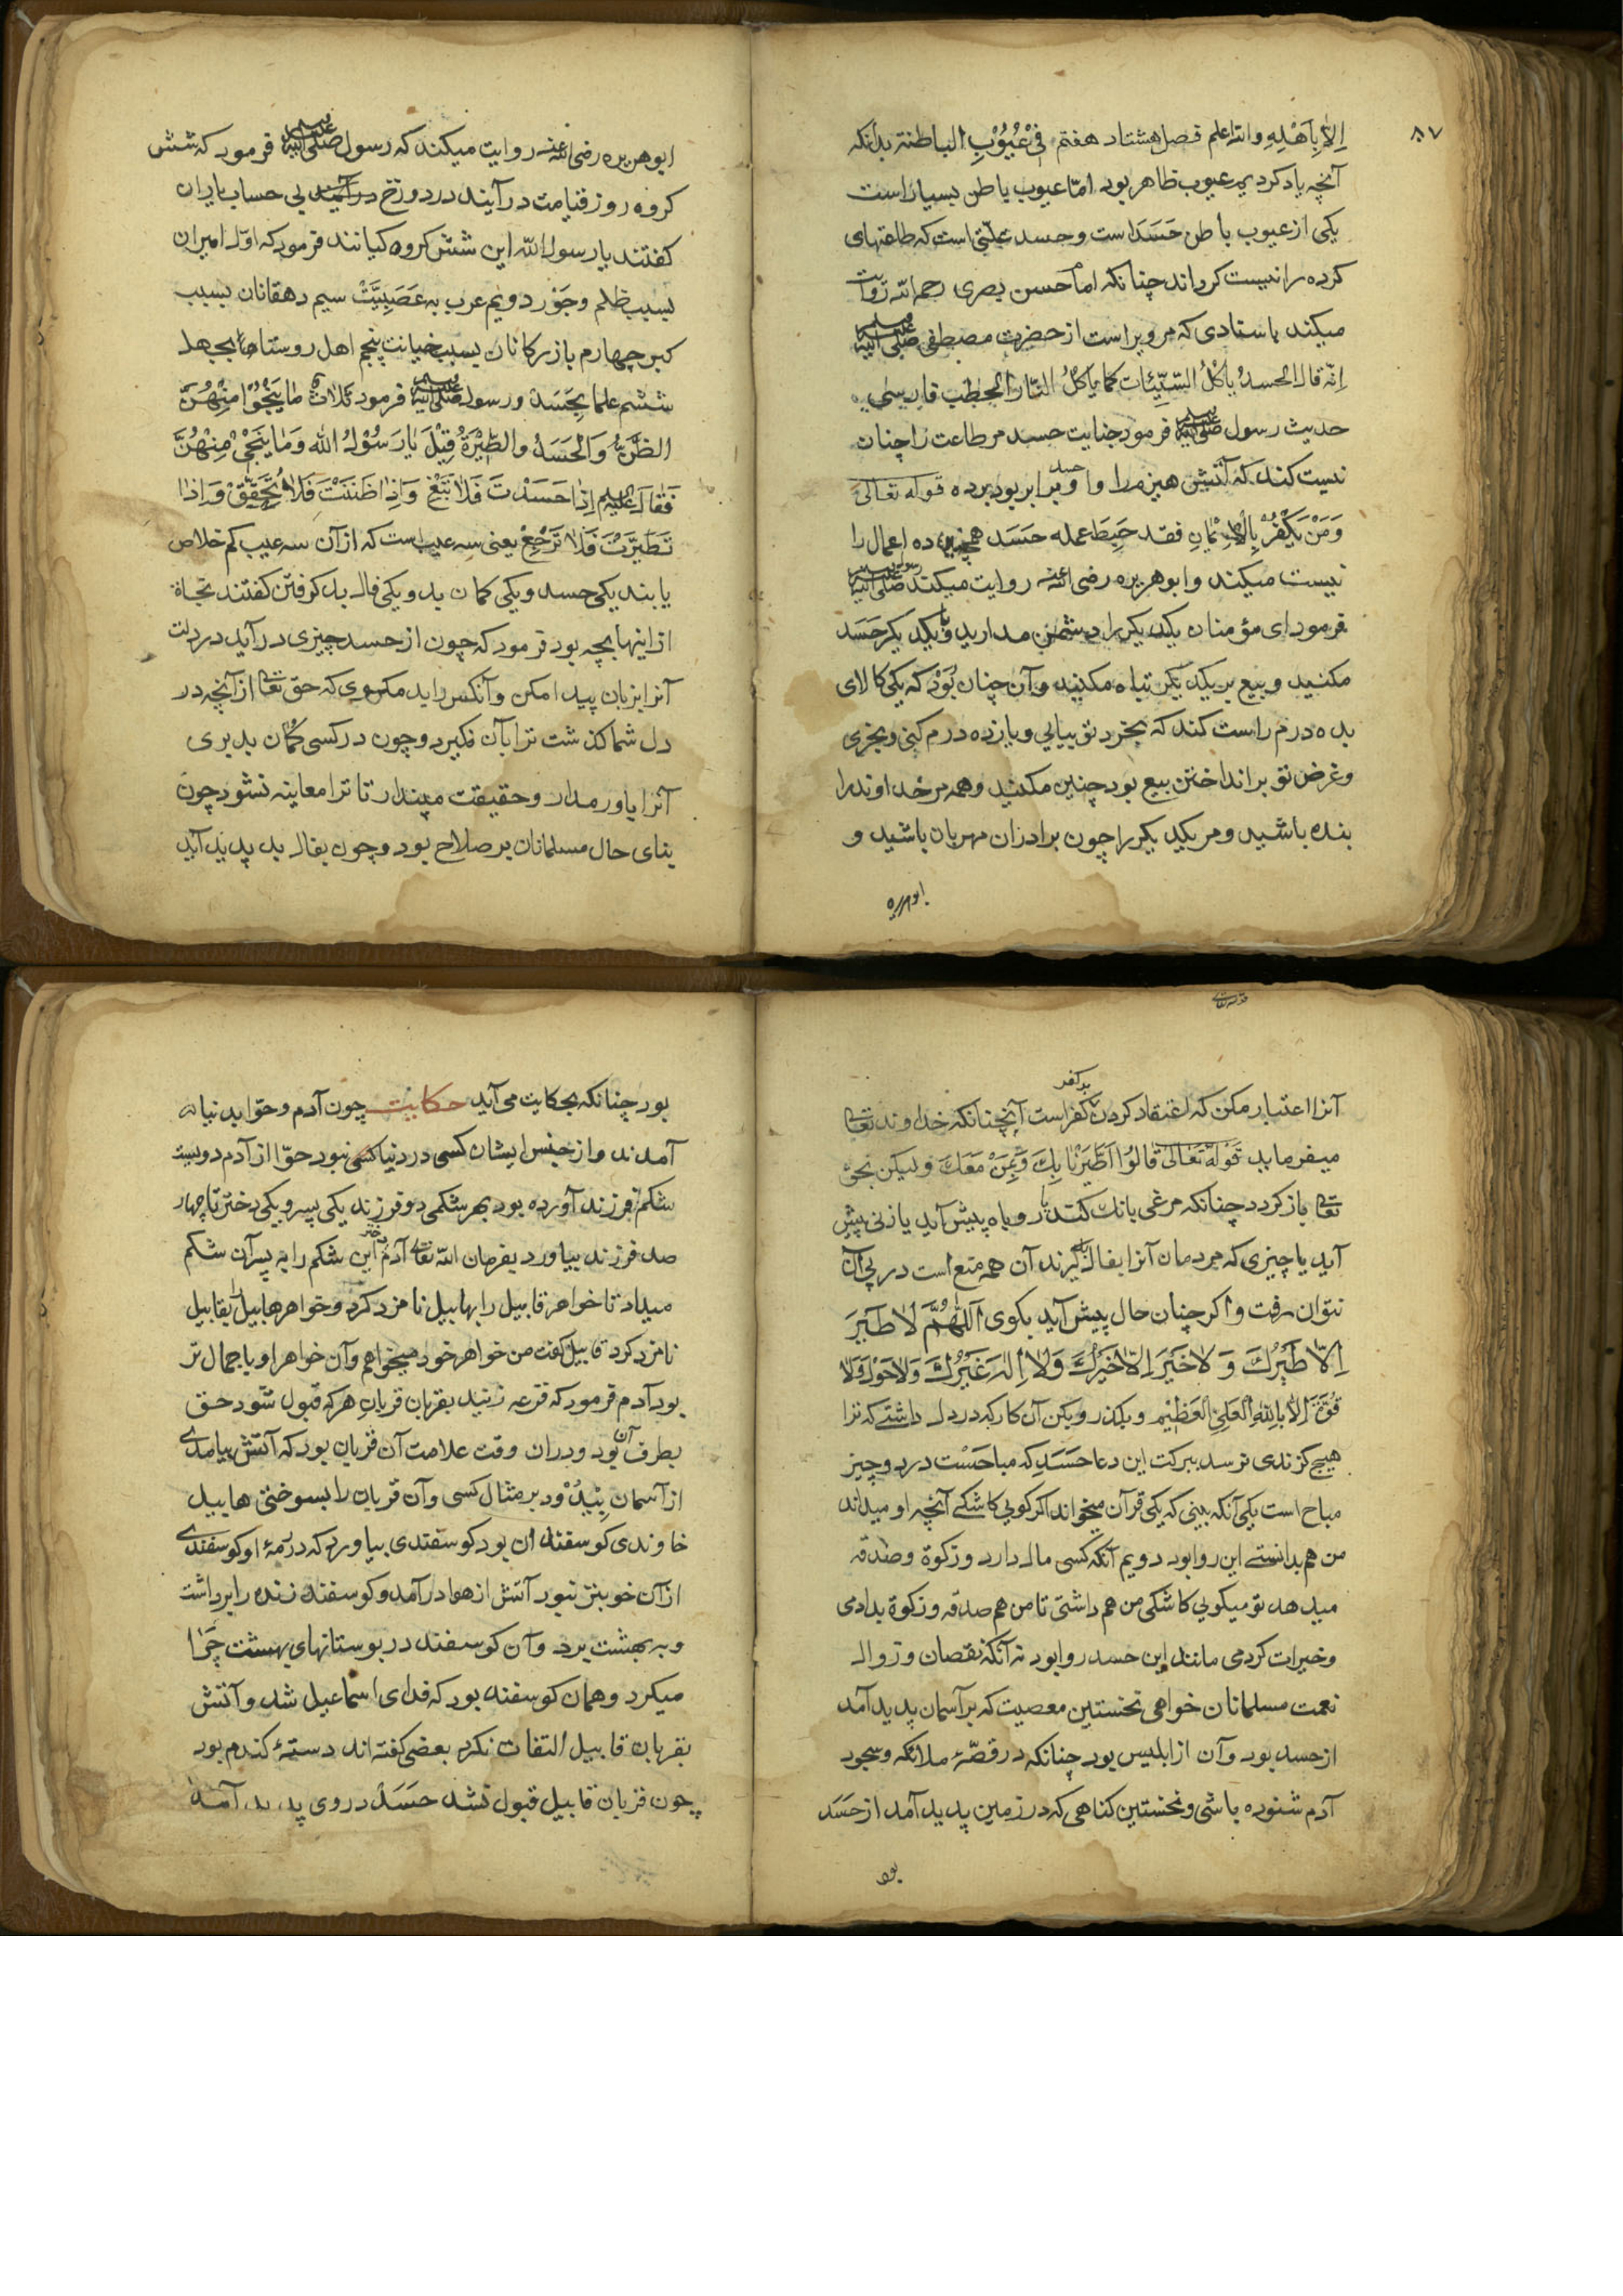 ۸۷
اِلاّ بِاَهْلِهِ والله اعلم فصل هشتاد هفتم فی عُیُوْبِ الباطنة بدانکه
آنچه یاد کردیم عیوب ظاهر بود امّا عیوب باطن بسیار است
یکی از عیوب باطن حَسَد است و حسد علّتی است که طاعتهای
کرده را نیست کرداند چنانکه امام حسن بصری رحمه الله روایت
میکند باسنادی که مر ویراست از حضرت مصطفی صلی الله علیه وسلم
اِنّه قال الحسدُ یاکلُ السّیّئات کما یاکلُ النّار الحطب فارسی
حدیث رسول صلی الله علیه وسلم فرمود جنایت حسد مر طاعت را چنان
نیست کند که آتش هیزم را و او حسد برابر بود برده قوله تعالی
وَمَنْ یَکْفُرْ بِالْاِیْمَانِ فقد حَبِطَ عمله حَسَد همچنین ده اعمال را
نیست میکند و ابوهریره رضی الله عنه روایت میکند رسول صلی الله علیه وسلم
فرمود ای مؤمنان یکدیکر را دشمن مدارید و با یکدیکر حَسَد
مکنید و بیع بر یکدیکر تباه مکنید و آن چنان بُوَد که یکی کالای
بده درم راست کند که بخرد تو بیایی و یازده درم کنی و بخری
و غرض تو بر انداختن بیع بود چنین مکنید و همه مر خداوند را
بنده باشید و مر یکدیکر را چون برادران مهربان باشید و
ابوهریره
ابوهریره رضی الله عنه روایت میکند که رسول صلی الله علیه وسلم فرمود که شش
کروه روز قیامت در آیند در دوزخ در آیند بی حساب یاران
کفتند یا رسول الله این شش کروه کیانند فرمود که اوّل امیران
بسبب ظلم و جَوْر دویم عرب به عَصَبِیَّتْ سیم دهقانان بسبب
کبر چهارم بازرکانان بسبب خیانت پنجم اهل روستاها بجهل
ششم علما بحَسَدْ و رسول صلی الله علیه وسلم فرمود ثَلاثٌ مٰا یَنْجُوْا مِنْهُنَّ
الظَّنُّ وَالْحَسَدُ والطِّیْرَةُ قِیْلَ یٰارَسُوْلُ الله وَمٰا یَنجٰی مِنْهُنَّ
فَقٰالَ علیه السلام اِذٰا حَسَدْتَ فَلٰا تَبْغِ وَاِذٰا ظَنَنْتَ فَلٰا تُحَقِّقْ وَاِذٰا
تَطَیَّرْتَ فَلٰا تَرْجِعْ یعنی سه عیب است که از آن سه عیب کم خلاص
یابند یکی حسد و یکی کمان بد و یکی فال بد کرفتن کفتند نجاة
از اینها بچه بود فرمود که چون از حسد چیزی در آید در دلت
آنرا بزبان پیدا مکن و آنکس را بد مکوی که حق تعالی از آنچه در
دل شما کذشت ترا بآن نکیرد و چون در کسی کُمان بد بری
آنرا یاور مدار و حقیقت مپندار تا ترا معاینه نشود چون
بنای حال مسلمانان بر صلاح بود و چون بفال بد پدید آید
قوله تعالی
آنرا اعتبار مکن که اعتقاد کردن بد کفر کفر است آنچنانکه خداوند تعالی
میفرماید قَوْلُهُ تَعٰالٰی قٰالُوْا اطَّیَّرْنٰا بِكَ وَبِمَنْ مَعَكَ ولیکن نحوی
تعالی باز کردد چنانکه مرغی بانك کند یا روباه پیش آید یا زنی پیش
آید یا چیزی که مردمان آنرا بفال بد کیرند آن همه منع است در پی آن
نتوان رفت و اکر چنان حال پیش آید بکوی اَللّٰهُمَّ لٰا طَیْرَ
اِلّا طَیْرُكَ وَ لٰا خَیْرَ اِلّا خَیْرُكَ وَلٰا اِلٰهَ غَیْرُكَ وَلٰا حَوْلَ وَلٰا
قُوَّةَ اِلّٰا بِاللّٰهِ العَلِیِّ العَظِیْمِ و بکذر و بکن آن کار که در دل داشتی که ترا
هیچ کزندی نرسد ببرکت این دعا حَسَدِ که مباحَسْت در دو چیز
مباح است یکی آنکه بینی که یکی قرآن میخواند اکر کویی کاشکی آنچه او میداند
من هم بدانستمی این روا بود دویم آنکه کسی مال دارد و زکوة و صدقه
میدهد تو میکویی کاشکی من هم داشتی تا من هم صدقه و زکوة بدادمی
و خیرات کردمی مانند این حسد روا بود نه آنکه نقصان و زوال
نعمت مسلمانان خواهی نخستین معصیت که بر آسمان پدید آمد
از حسد بود و آن از ابلیس بود چنانکه در قصّۀ ملائکه و سجود
آدم شنوده باشی و نخستین کناهی که در زمین پدید آمد از حَسَد
بود
بود چنانکه بحکایت می آید حکایت چون آدم و حوّا بدنیا
آمدند و از جنس ایشان کسی در دنیا کسی نبود حوّا از آدم دویست
شکم فرزند آورده بود بهر شکمی دو فرزند یکی پسر و یکی دختر تا چهار
صد فرزند بیاورد بفرمان اللّه تعالی آدم دختر این شکم را به پسر آن شکم
میداد تا خواهر قابیل را بهابیل نامزد کرد و خواهر هابیل را بقابیل
نامزد کرد قابیل کفت من خواهر خود میخواهم و آن خواهر او باجمال تر
بود آدم فرمود که قرعه زنید بقربان قربان هر که قبول شود حق
بطرف آن بود و در آن وقت علامت آن قربان بود که آتش بیامدی
از آسمان بی دُوْد بر مثال کسی و آن قربان را بسوختی هابیل
خاوندی کوسفندان بود کوسفندی بیاورد که در رمۀ او کوسفندی
از آن خوبتر نبود آتش از هوا در آمد و کوسفند زنده را برداشت
و به بهشت برد و آن کوسفند در بوستانهای بهشت چرا
میکرد و همان کوسفند بود که فدای اسماعیل شد و آتش
بقربان قابیل التفات نکرد بعضی کفته اند دستۀ کندم بود
چون قربان قابیل قبول نشد حَسَدْ در وی پدید آمد